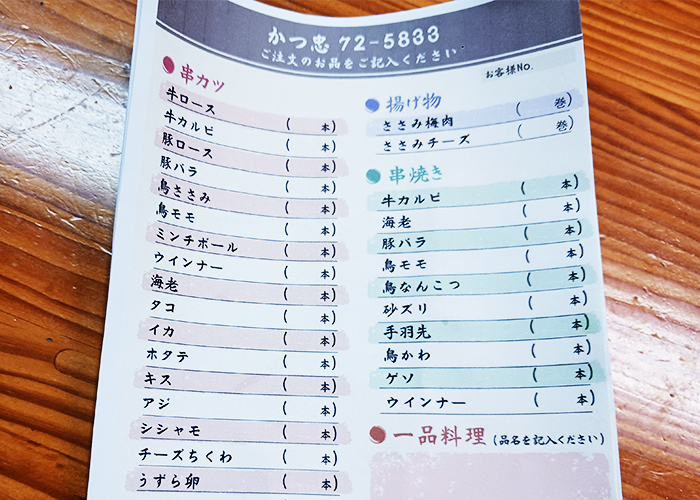 かつ忠 72-5833
ご注文のお品をご記入ください
お客様No.
串カツ
牛ロース ( 本)
牛カルビ ( 本)
豚ロース ( 本)
豚バラ ( 本)
鳥ささみ ( 本)
鳥モモ ( 本)
ミンチボール ( 本)
ウインナー ( 本)
海老 ( 本)
タコ ( 本)
イカ ( 本)
ホタテ ( 本)
キス ( 本)
アジ ( 本)
シシャモ ( 本)
チーズちくわ ( 本)
うずら卵 ( 本)
揚げ物
ささみ梅肉 ( 巻)
ささみチーズ ( 巻)
串焼き
牛カルビ ( 本)
海老 ( 本)
豚バラ ( 本)
鳥モモ ( 本)
鳥なんこつ ( 本)
砂ズリ ( 本)
手羽先 ( 本)
鳥かわ ( 本)
ゲソ ( 本)
ウインナー ( 本)
一品料理 (品名を記入ください)